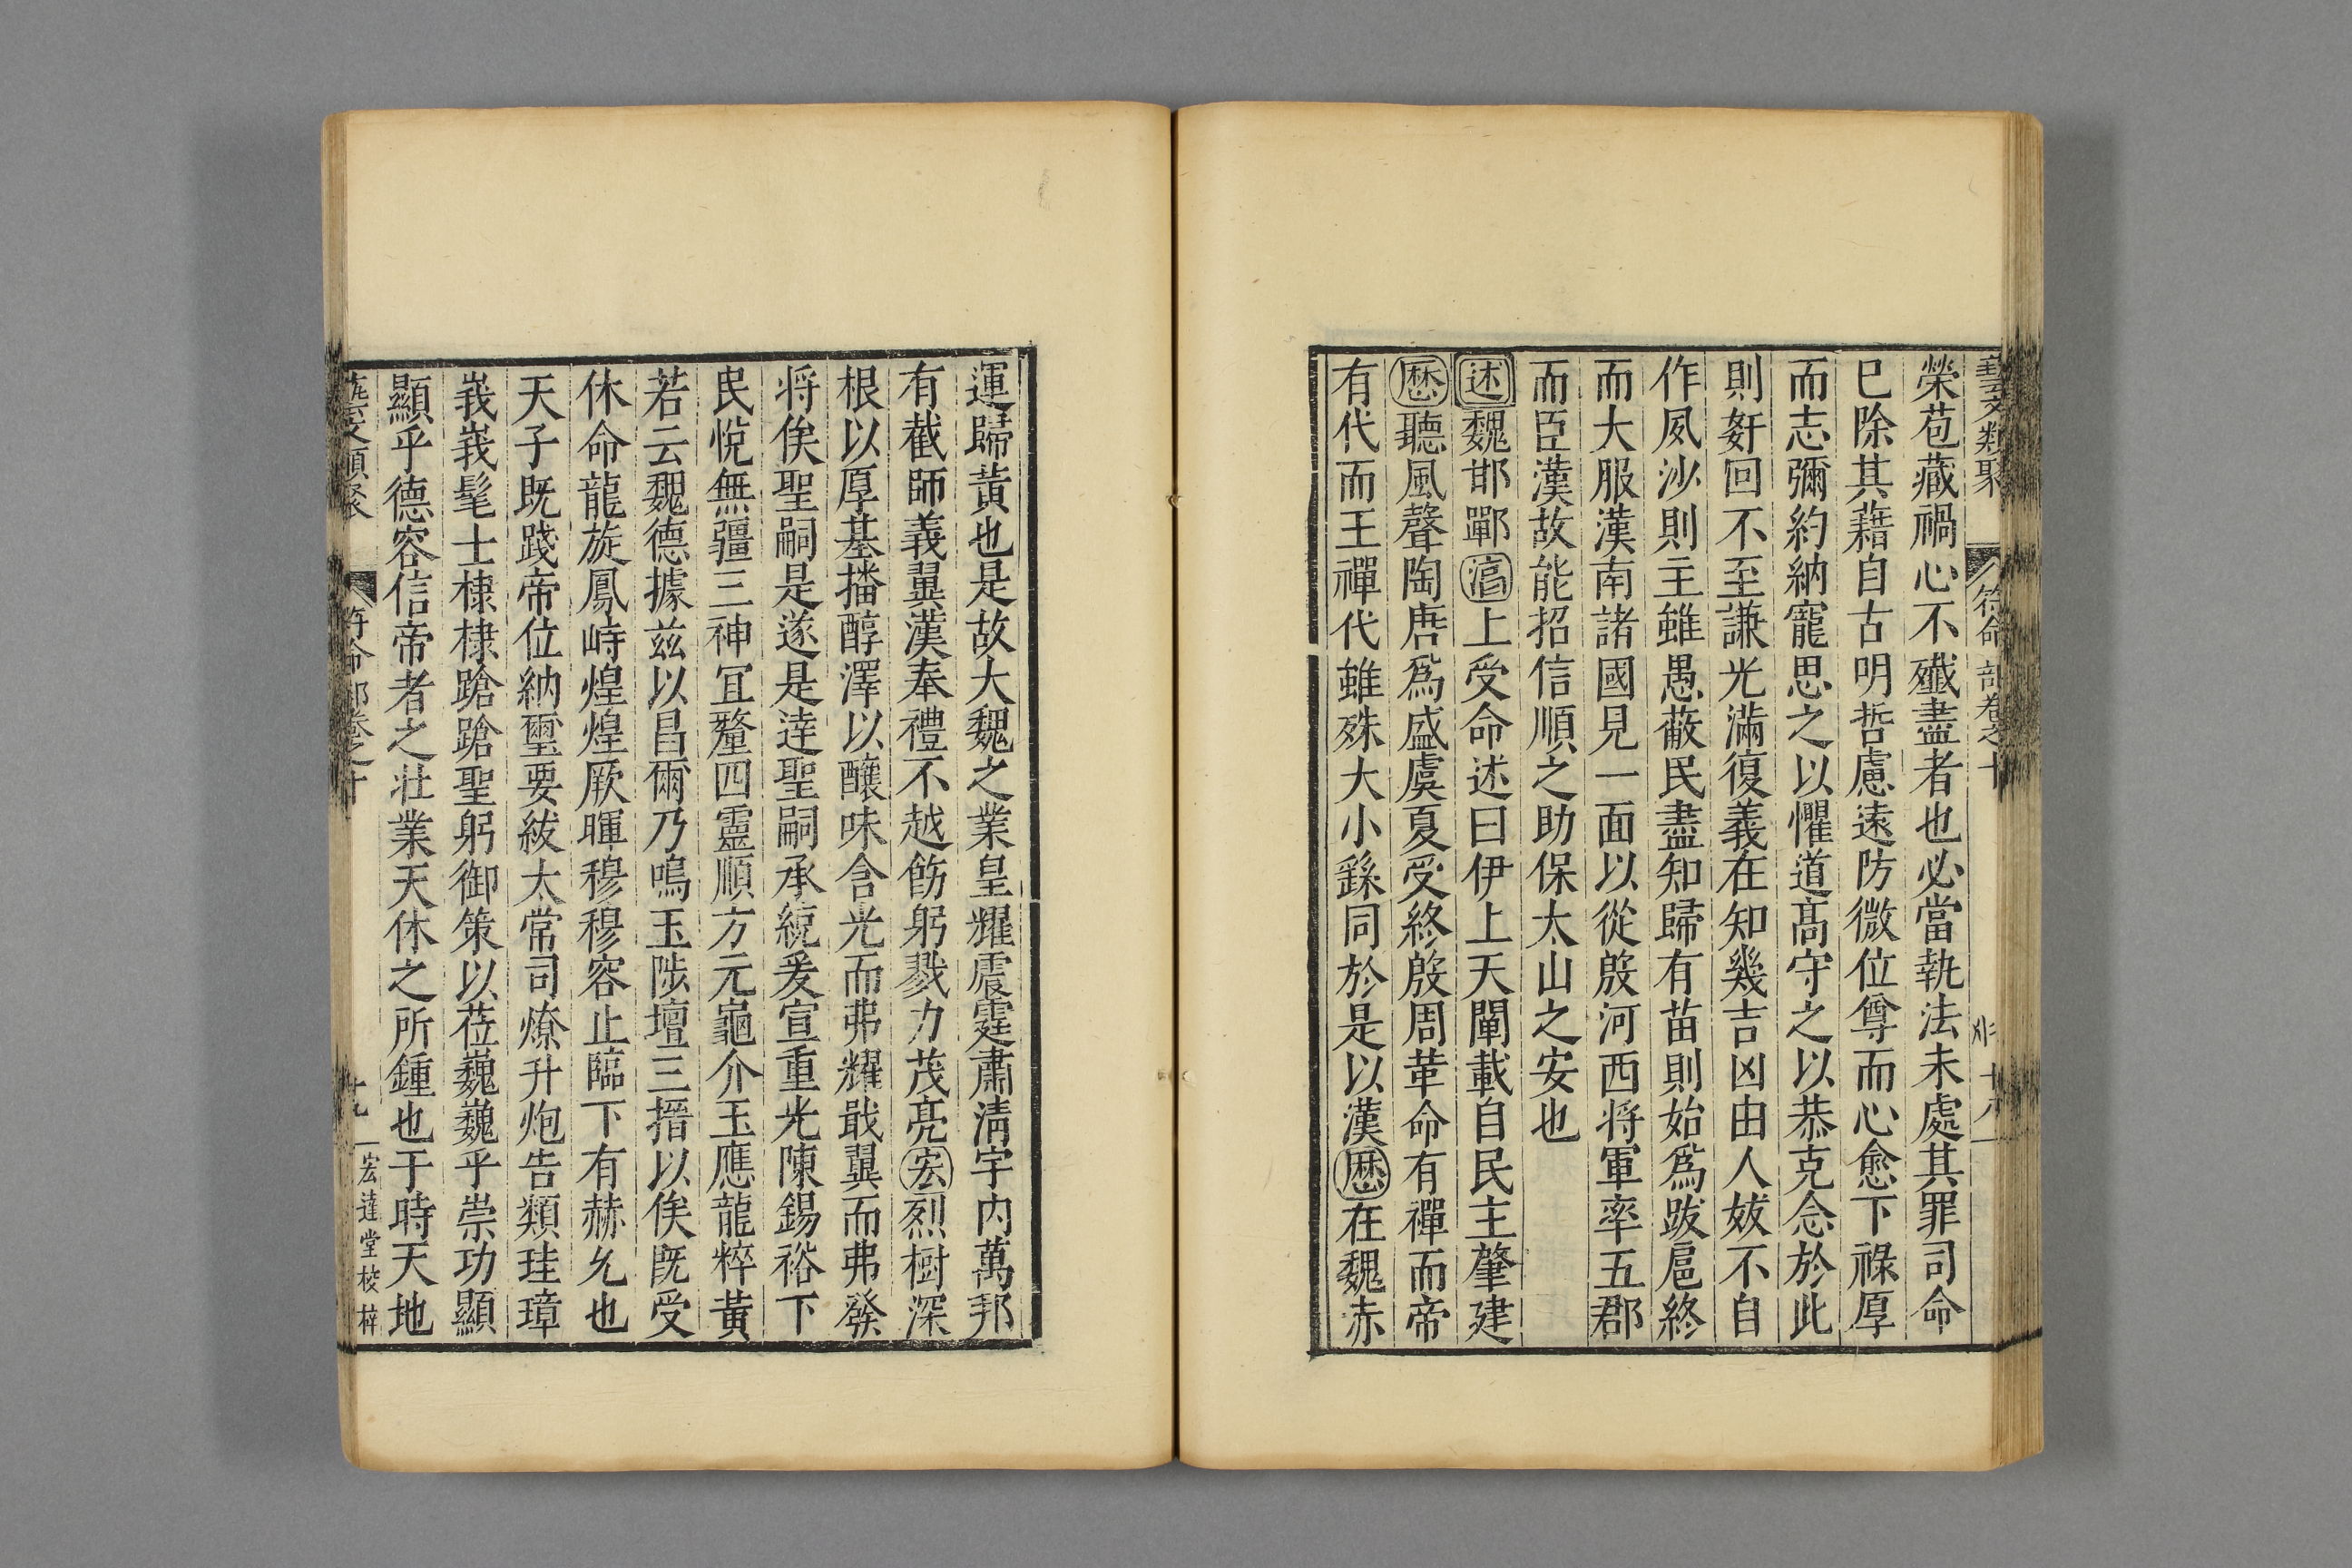 藝文類聚 符命部卷之十 十八
榮苞藏禍心不殲盡者也必當執法未處其罪司命
已除其籍自古明哲慮遠防微位尊而心愈下祿厚
而志彌約納寵思之以懼道髙守之以恭克念於此
則姧回不至謙光滿復義在知幾吉凶由人妭不自
作夙沙則主雖愚蔽民盡知歸有苗則始爲跋扈終
而大服漢南諸國見一面以從殷河西将軍率五郡
而臣漢故能招信順之助保太山之安也
述魏邯鄲淳上受命述曰伊上天闡載自民主肇建
歷聽風聲陶唐爲盛虞夏受終殷周革命有禪而帝
有代而王禪代雖殊大小繇同於是以漢歷在魏赤
運歸黃也是故大魏之業皇耀震霆肅淸宇内萬邦
有截師義翼漢奉禮不越飭躬戮力茂亮宏烈樹深
根以厚基播醇澤以釀味含光而弗耀戢翼而弗發
将俟聖嗣是遂是逹聖嗣承統爰宣重光陳錫裕下
民悅無疆三神冝釐四靈順方元龜介玉應龍粹黃
若云魏德據兹以昌爾乃鳴玉陟壇三搢以俟既受
休命龍旋鳳峙煌煌厥暉穆穆容止臨下有赫允也
天子既踐帝位納璽要紱太常司燎升炮告類珪璋
峩峩髦士棣棣蹌蹌聖躬御策以莅巍巍乎崇功顯
顯乎德容信帝者之壮業天休之所鍾也于時天地
藝文類聚 符命部卷之十 十九 宏達堂校梓